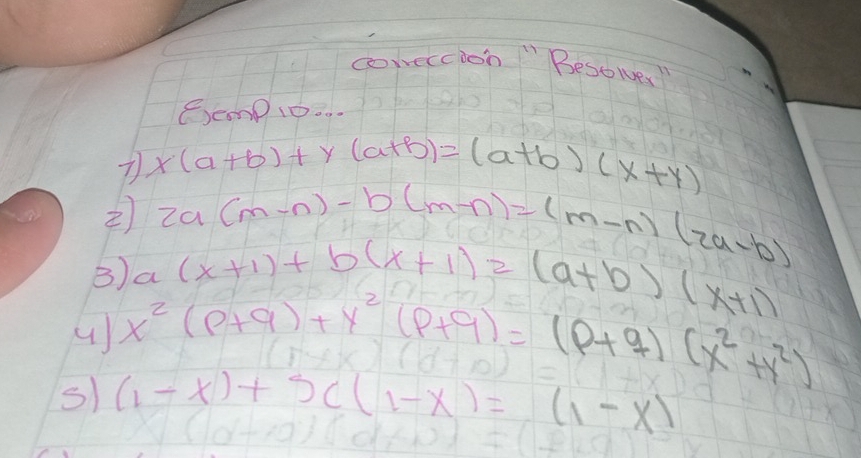 corrección "Resolver"
Ejemplo...
1) x(a+b)+y(a+b)=(a+b)(x+y)
2) 2a(m-n)-b(m-n)=(m-n)(2a-b)
3) a(x+1)+b(x+1)=(a+b)(x+1)
4) x²(p+q)+y²(p+q)=(p+q)(x²+y²)
5) (1-x)+5c(1-x)=(1-x)